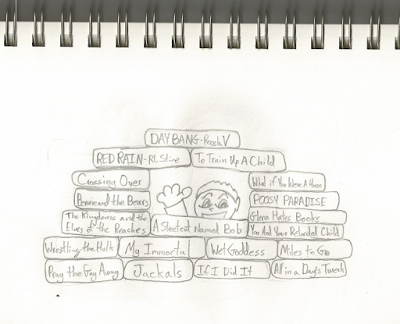 DAY BANG-Roosh V
RED RAIN-RL Stine
To Train Up A Child
Crossing Over
What if You Were A Horse
Bonne and the Bears
POOSY PARADISE
The Kingdoms and the
Elves of the Reaches
A Streetcat Named Bob
Glenn Hates Books
You And Your Retarded Child
Wrestling the Hulk
My Immortal
Wet Goddess
Miles to Go
Pray the Gay Away
Jackals
If I Did It
All in a Day's Tweak